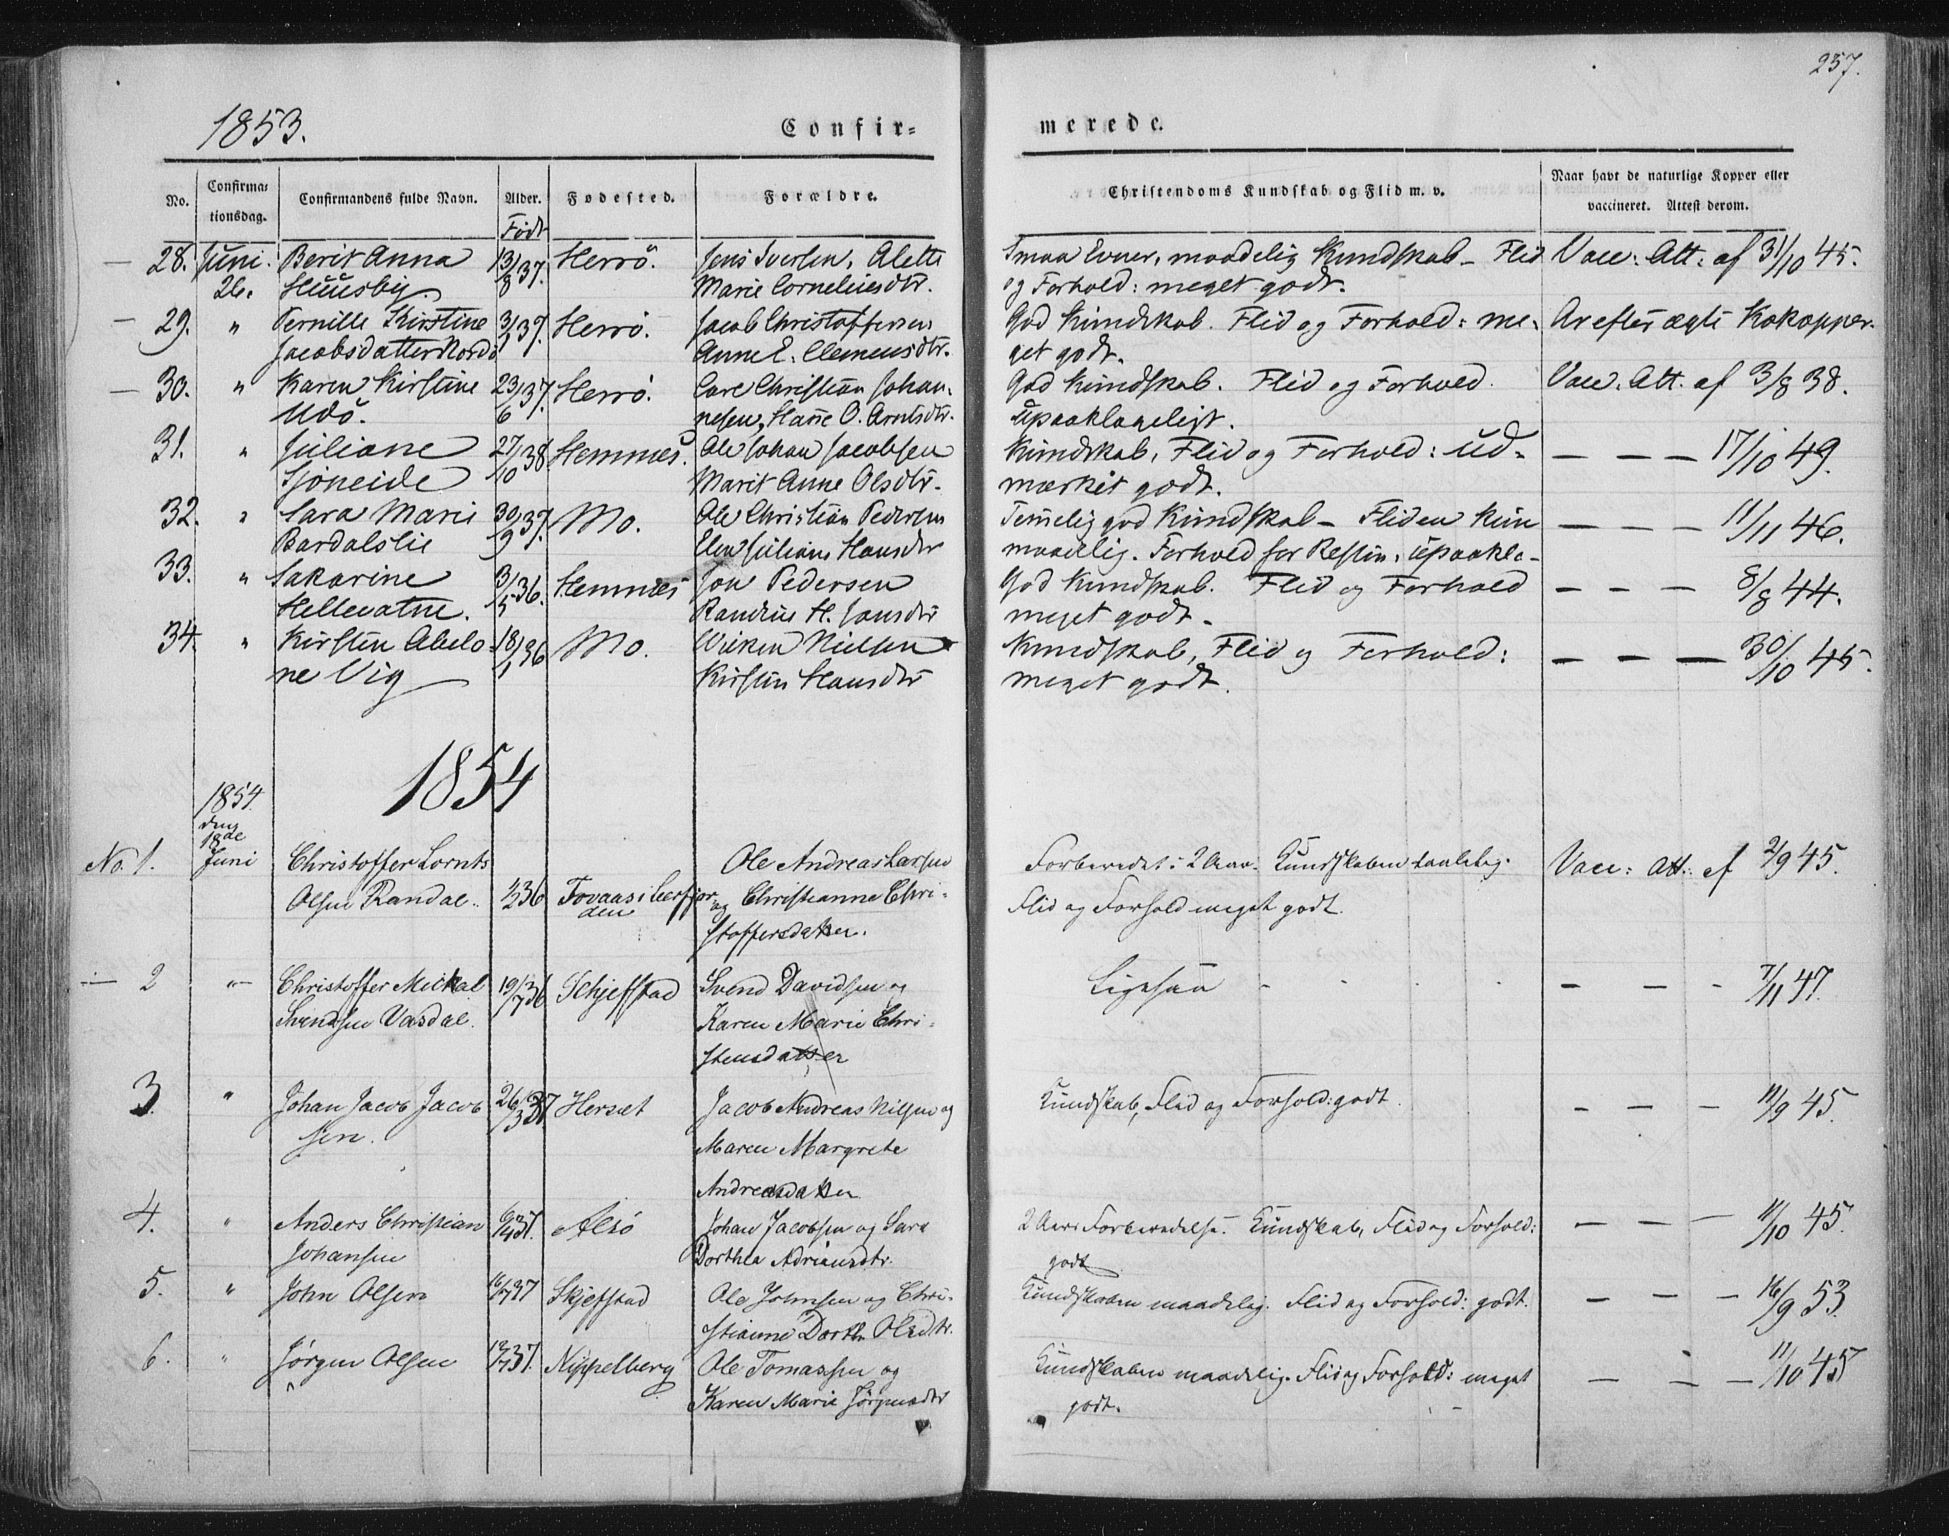 257.
1853. Confirmerede.
No. Confirmationsdag. Confirmandens fulde Navn. Alder. Fødested. Forældre. Christendoms Kundskab og Flid m. v. Naar havt de naturlige Kopper eller vaccineret. Attest derom.
Født
28. Juni Berit Anna 13/8 37. Herrö. Jens Iversen, Alette Smaa Evner, maadelig Kundskab – Flid Vacc: Att: af 31/10 45.
26. Huusby. Marie Corneliusdtr. og Forhold: meget godt.
29. " Pernille Kirstine 3/1 37. Herrö. Jacob Christoffersen God Kundskab. Flid og Forhold: me- Ar efter ægte Kokopper.
Jacobsdatter Nordö Anne E. Clemensdtr. get godt.
30. " Karen Kirstine 23/6 37. Herrö. Carl Christian Johan- God Kundskab. Flid og Forhold Vacc. Att. af 3/8 38.
Udö. nesen, Hane O. Arntsdtr. upaaklageligt.
31. " Juliane 27/10 38 Hemnes. Ole Johan Jacobsen Kundskab, Flid og Forhold: ud- — — — 17/10 49.
Sjöneide Marit Anne Olsdtr. mærket godt.
32. " Sara Marie 30/9 37. Mo. Ole Christian Pedersen Temelig god Kundskab – Fliden kun — — — 11/11 46.
Bardalslie Elen Juliane Hansdtr maadelig. Forhold for Resten: upaakla-
33. " Sakarine 3/5 36. Hemnes Jon Pedersen God Kundskab. Flid og Forhold — — — 8/8 44.
Hellevatne. Randius H. Jonsdtr meget godt.
34. " Kirsten Abelo 18/1 36 Mo. Nielsen Kundskab, Flid og Forhold: — — — 30/10 45.
ne Vig Kirsten Hansdtr meget godt.
1854
1854
den
18de
No. 1. Juni Christoffer Lornts Ole Andreas Larsen Forberedet i 2 Aar. Kundskaben taalelig. Vacc: Att: af 2/9 45.
Olsen Randal. 1/2 36 i Leerfjor- og Christianne Chri- Flid og Forhold meget godt.
den stoffersdatter.
— 2 " Christoffer Mickal 19/7 36 Schjefstad Svend Davidsen og Ligesaa - - - — - - 7/11 47.
Svendsen Vasdal. Karen Marie Chri-
stensdatter
3. " Johan Jacob Jacob 26/3 37 Herset Jacob Andreas Nilsen og Kundskab, Flid og Forhold: godt. — — — 11/9 45.
sen. Maren Margrete
Andreasdatter
4. " Anders Christian 6/4 37. Alsö Johan Jacobsen og Sara 2 Aars Forberedelse. Kundskab, Flid og Forhold: — — — 11/10 45.
Johansen Dorthea Adriansdtr. godt
5. " John Olsen 16/7 37 Skjefstad Ole Johnsen og Chri- Kundskaben maadelig. Flid og Forhold: godt. — — — 16/9 53.
stianne Dorth. Olsdtr.
6. " Jørgen Olsen 12/7 37. Nippelberg Ole Tomassen og Kundskaben maadelig. Flid og Forhold: meget — — — 11/10 45
Karen Marie Jørgensdtr godt.